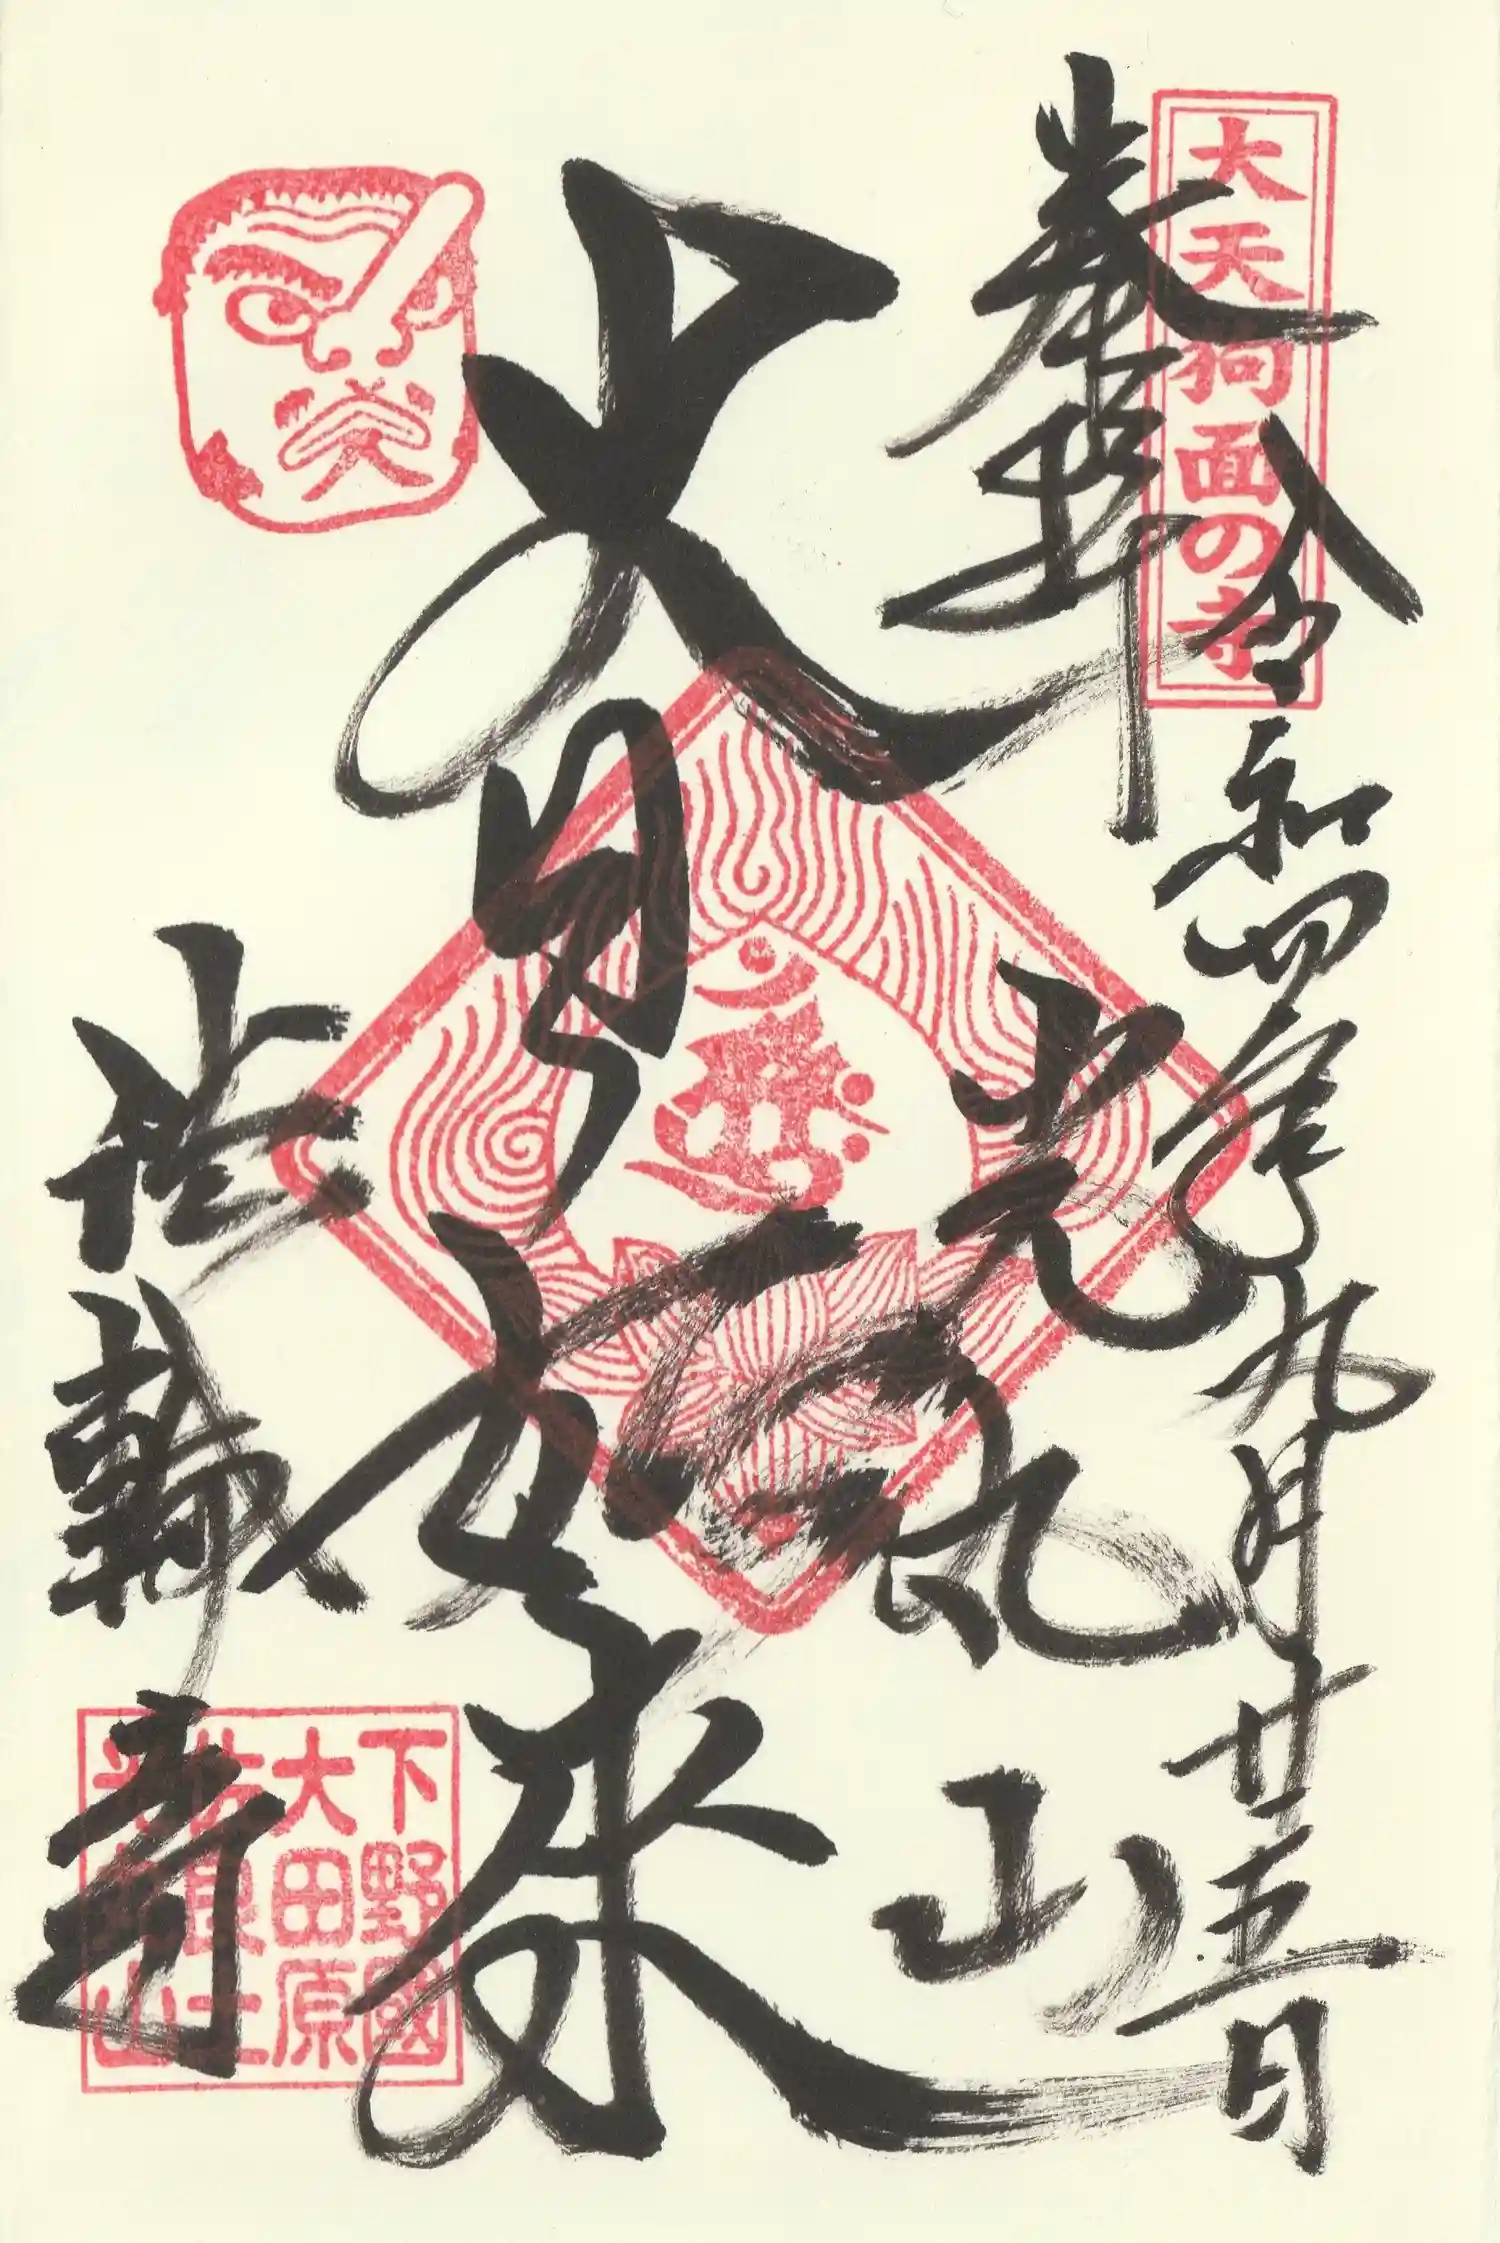 大天狗面の寺
令和四年九月廿五日
奉拝
光丸山
大日如来
法輪寺
下野國
大田原
佐良土
光丸山